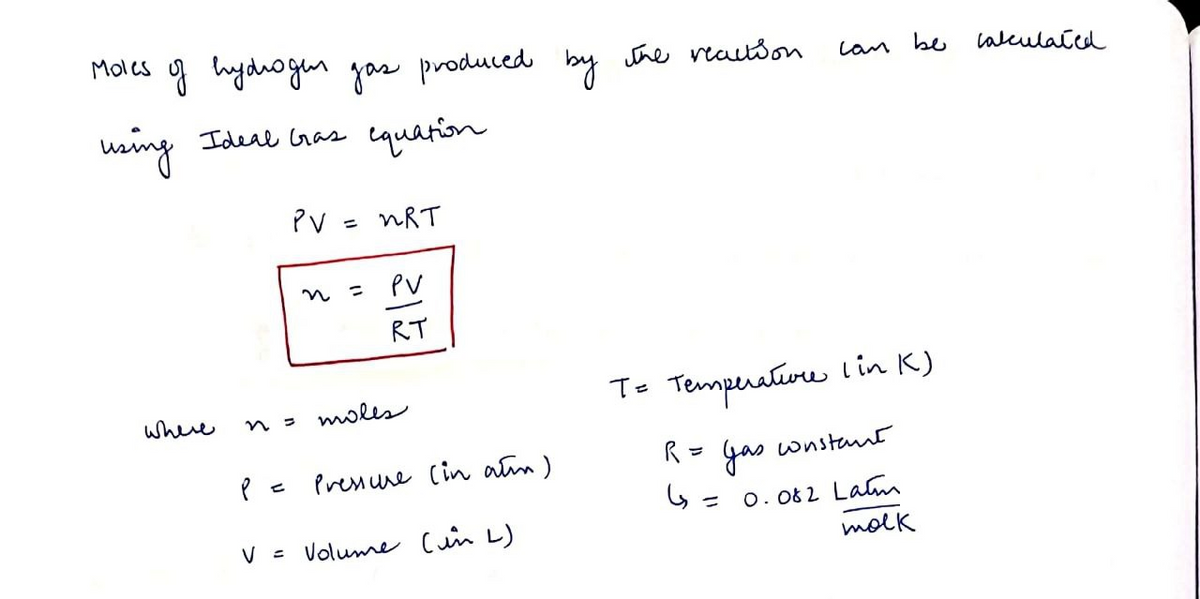 Moles of hydrogen gas produced by the reaction can be calculated
using Ideal Gas equation
PV = nRT
n = PV
RT
where n = moles
P = Pressure (in atm)
V = Volume (in L)
T = Temperature (in K)
R = gas constant
↳ = 0.082 Latm
molK